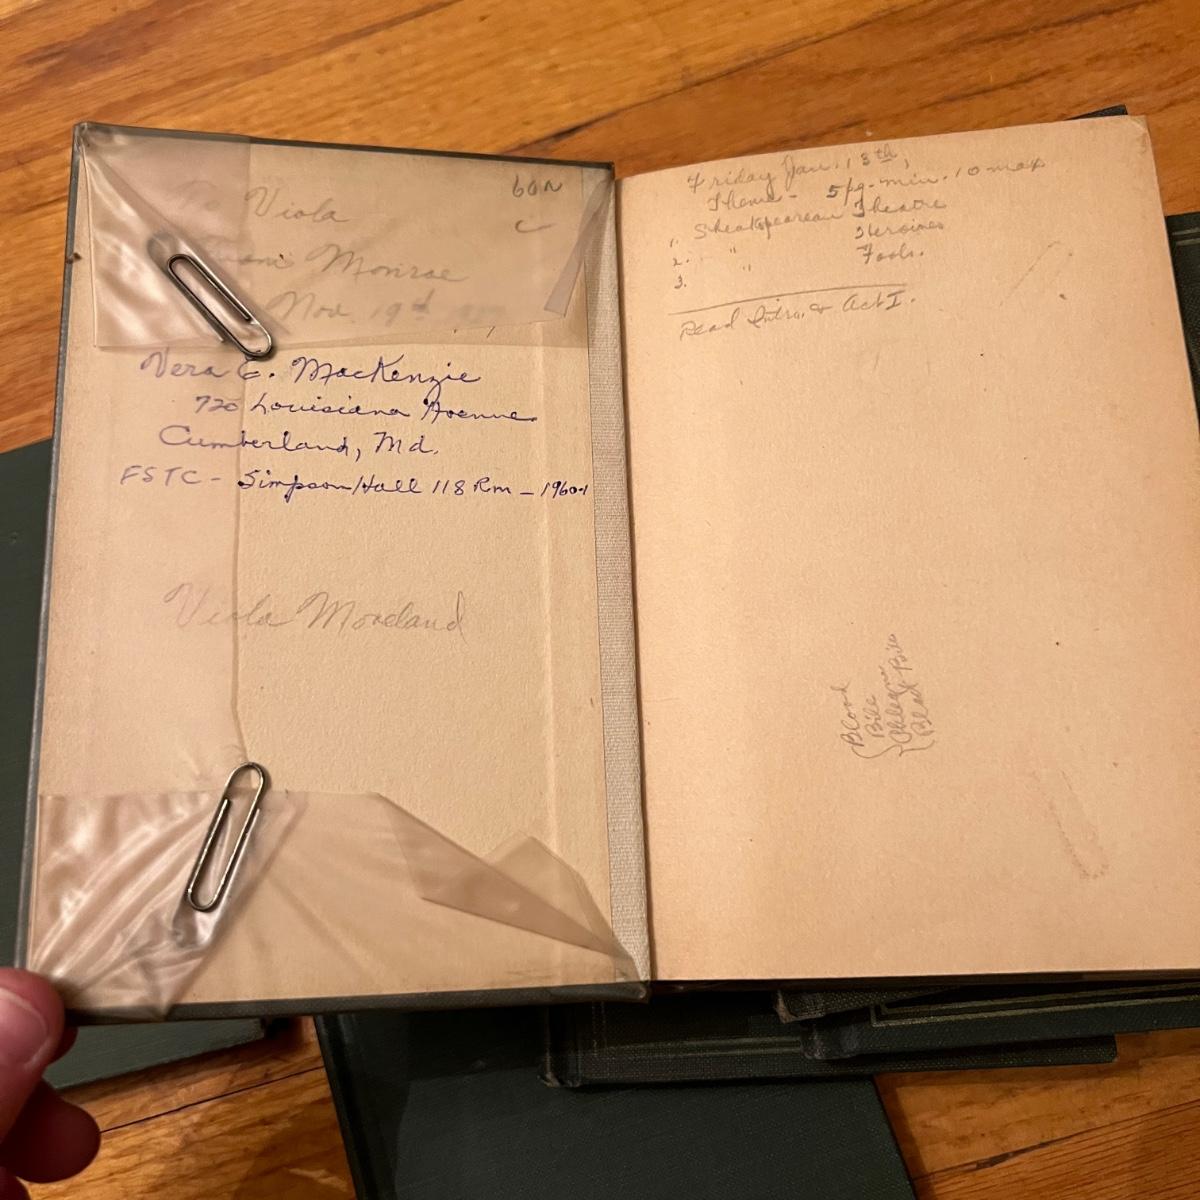 60N
Viola
Monroe
Nov. 19
Vera C. MacKenzie
720 Louisiana Avenue
Cumberland, Md.
FSTC - Simpson Hall 118 Rm - 1960-1
Viola Moreland
Friday Jan. 13th,
Theme - 5 pg. min. 10 max
1. Shakespearean Theatre
2. " Heroines
3. " Fools.
Read Intro. & Act I.
Blood
Bile
Phlegm
Black Bile